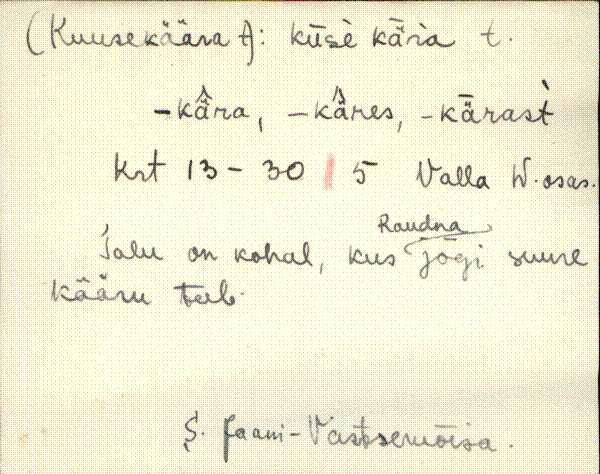 (Kuusekäära t): kūsè kä̀ria t.
-kä̂ra, -kä̂res, -kǟrast̀
Krt 13-30 | 5 Valla W. osas.
Talu on kohal, kus Raudna jõgi suure
kääru teeb.
S. Jaani-Vastsemõisa.